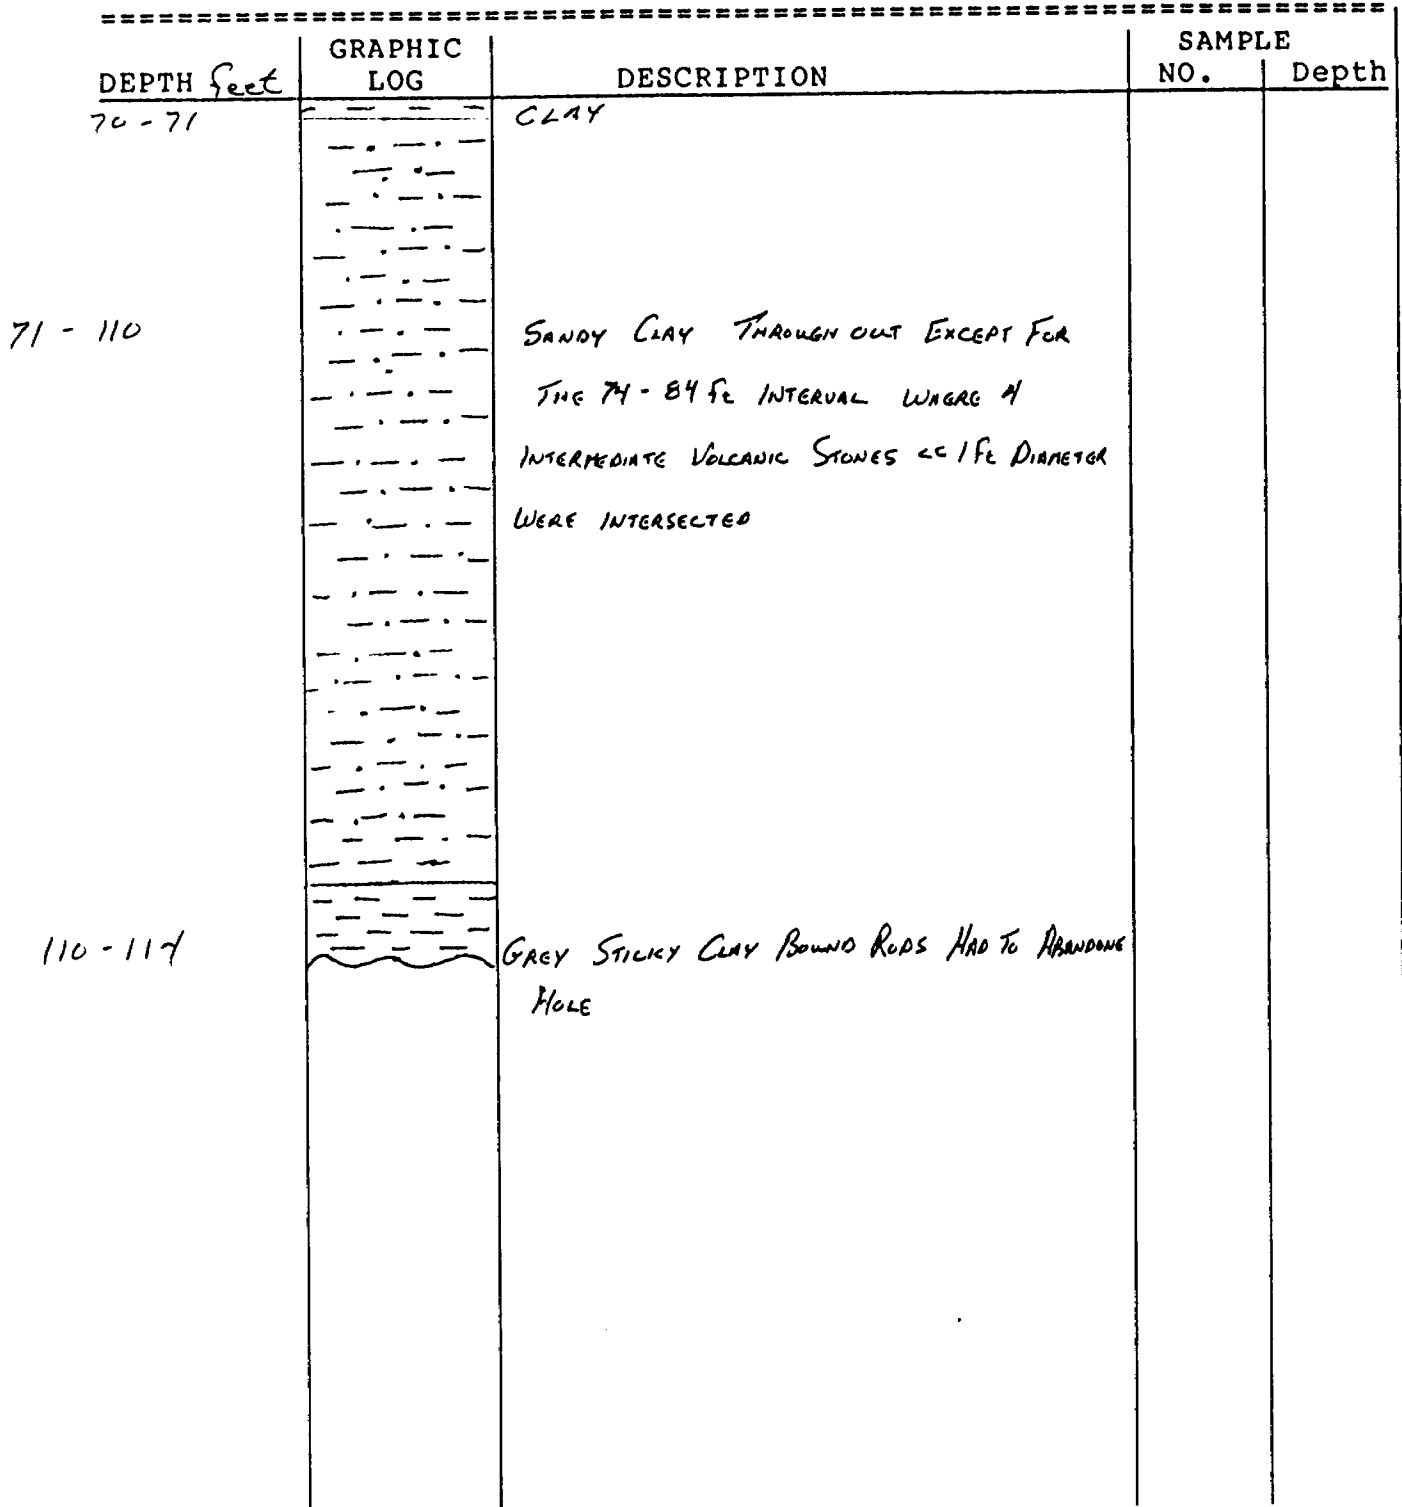 GRAPHIC SAMPLE
DEPTH feet LOG DESCRIPTION NO. Depth
70 - 71 CLAY
71 - 110 SANDY CLAY THROUGH OUT EXCEPT FOR
THE 74 - 84 ft INTERVAL WHERE 4
INTERMEDIATE VOLCANIC STONES << 1 Ft DIAMETER
WERE INTERSECTED
110 - 114 GREY STICKY CLAY BOUND RODS HAD TO ABANDONE
HOLE